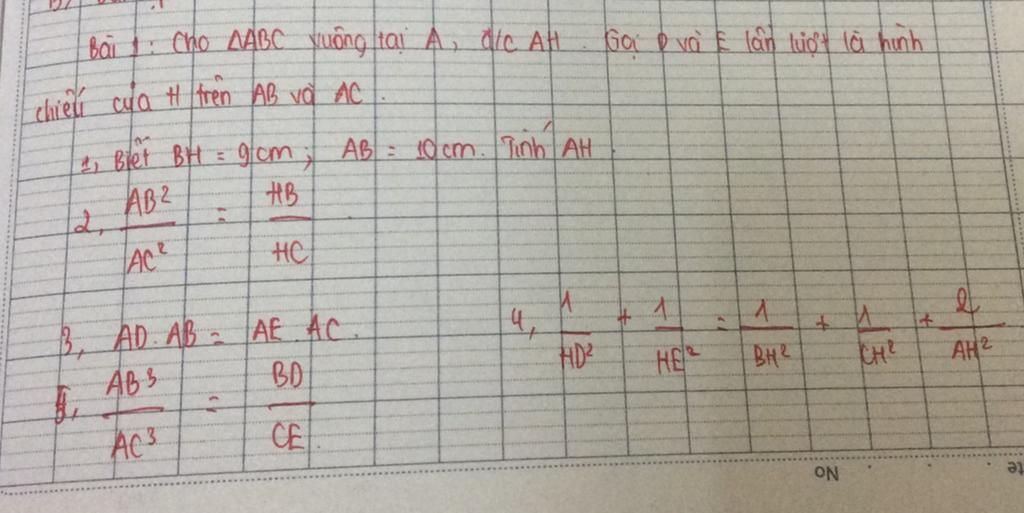 Bài 1: Cho ΔABC vuông tại A, đ/c AH. Gọi D và E lần lượt là hình
chiếu của H trên AB và AC.
1, Biết BH = 9cm; AB = 10cm. Tính AH
2, AB²/AC² = HB/HC
3, AD.AB = AE.AC.
4, 1/HD² + 1/HE² = 1/BH² + 1/CH² + 2/AH²
5, AB³/AC³ = BD/CE.
No